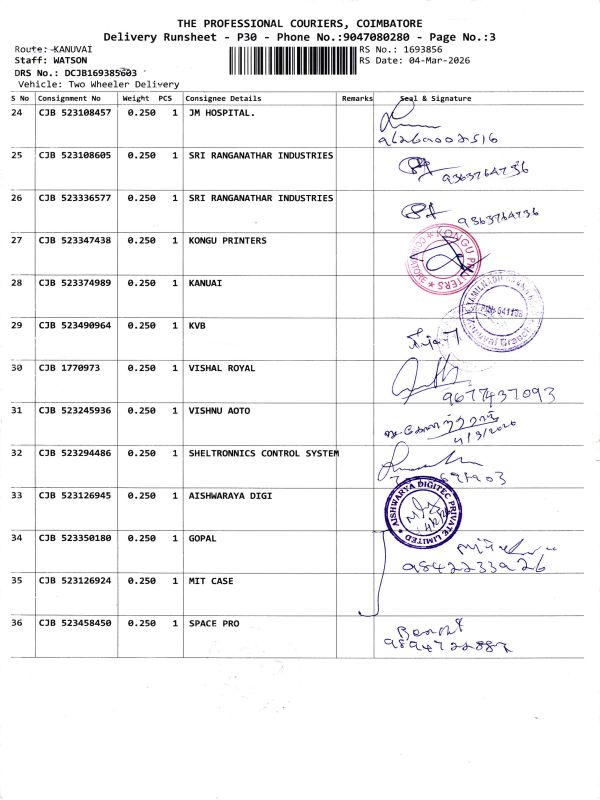 THE PROFESSIONAL COURIERS, COIMBATORE
Delivery Runsheet - P30 - Phone No.:9047080280 - Page No.:3
Route: KANUVAI RS No.: 1693856
Staff: WATSON RS Date: 04-Mar-2026
DRS No.: DCJB169385603
Vehicle: Two Wheeler Delivery
S No Consignment No Weight PCS Consignee Details Remarks Seal & Signature
24 CJB 523108457 0.250 1 JM HOSPITAL.
25 CJB 523108605 0.250 1 SRI RANGANATHAR INDUSTRIES
9363764736
26 CJB 523336577 0.250 1 SRI RANGANATHAR INDUSTRIES
9363764736
27 CJB 523347438 0.250 1 KONGU PRINTERS
KONGU PRINTERS
28 CJB 523374989 0.250 1 KANUAI
Kanuvai Branch
29 CJB 523490964 0.250 1 KVB
30 CJB 1770973 0.250 1 VISHAL ROYAL
9677437093
31 CJB 523245936 0.250 1 VISHNU AOTO
4/3/2026
32 CJB 523294486 0.250 1 SHELTRONNICS CONTROL SYSTEM
33 CJB 523126945 0.250 1 AISHWARAYA DIGI
AISHWARYA DIGITEC PRIVATE LIMITED
34 CJB 523350180 0.250 1 GOPAL
9842233926
35 CJB 523126924 0.250 1 MIT CASE
36 CJB 523458450 0.250 1 SPACE PRO
9894722887